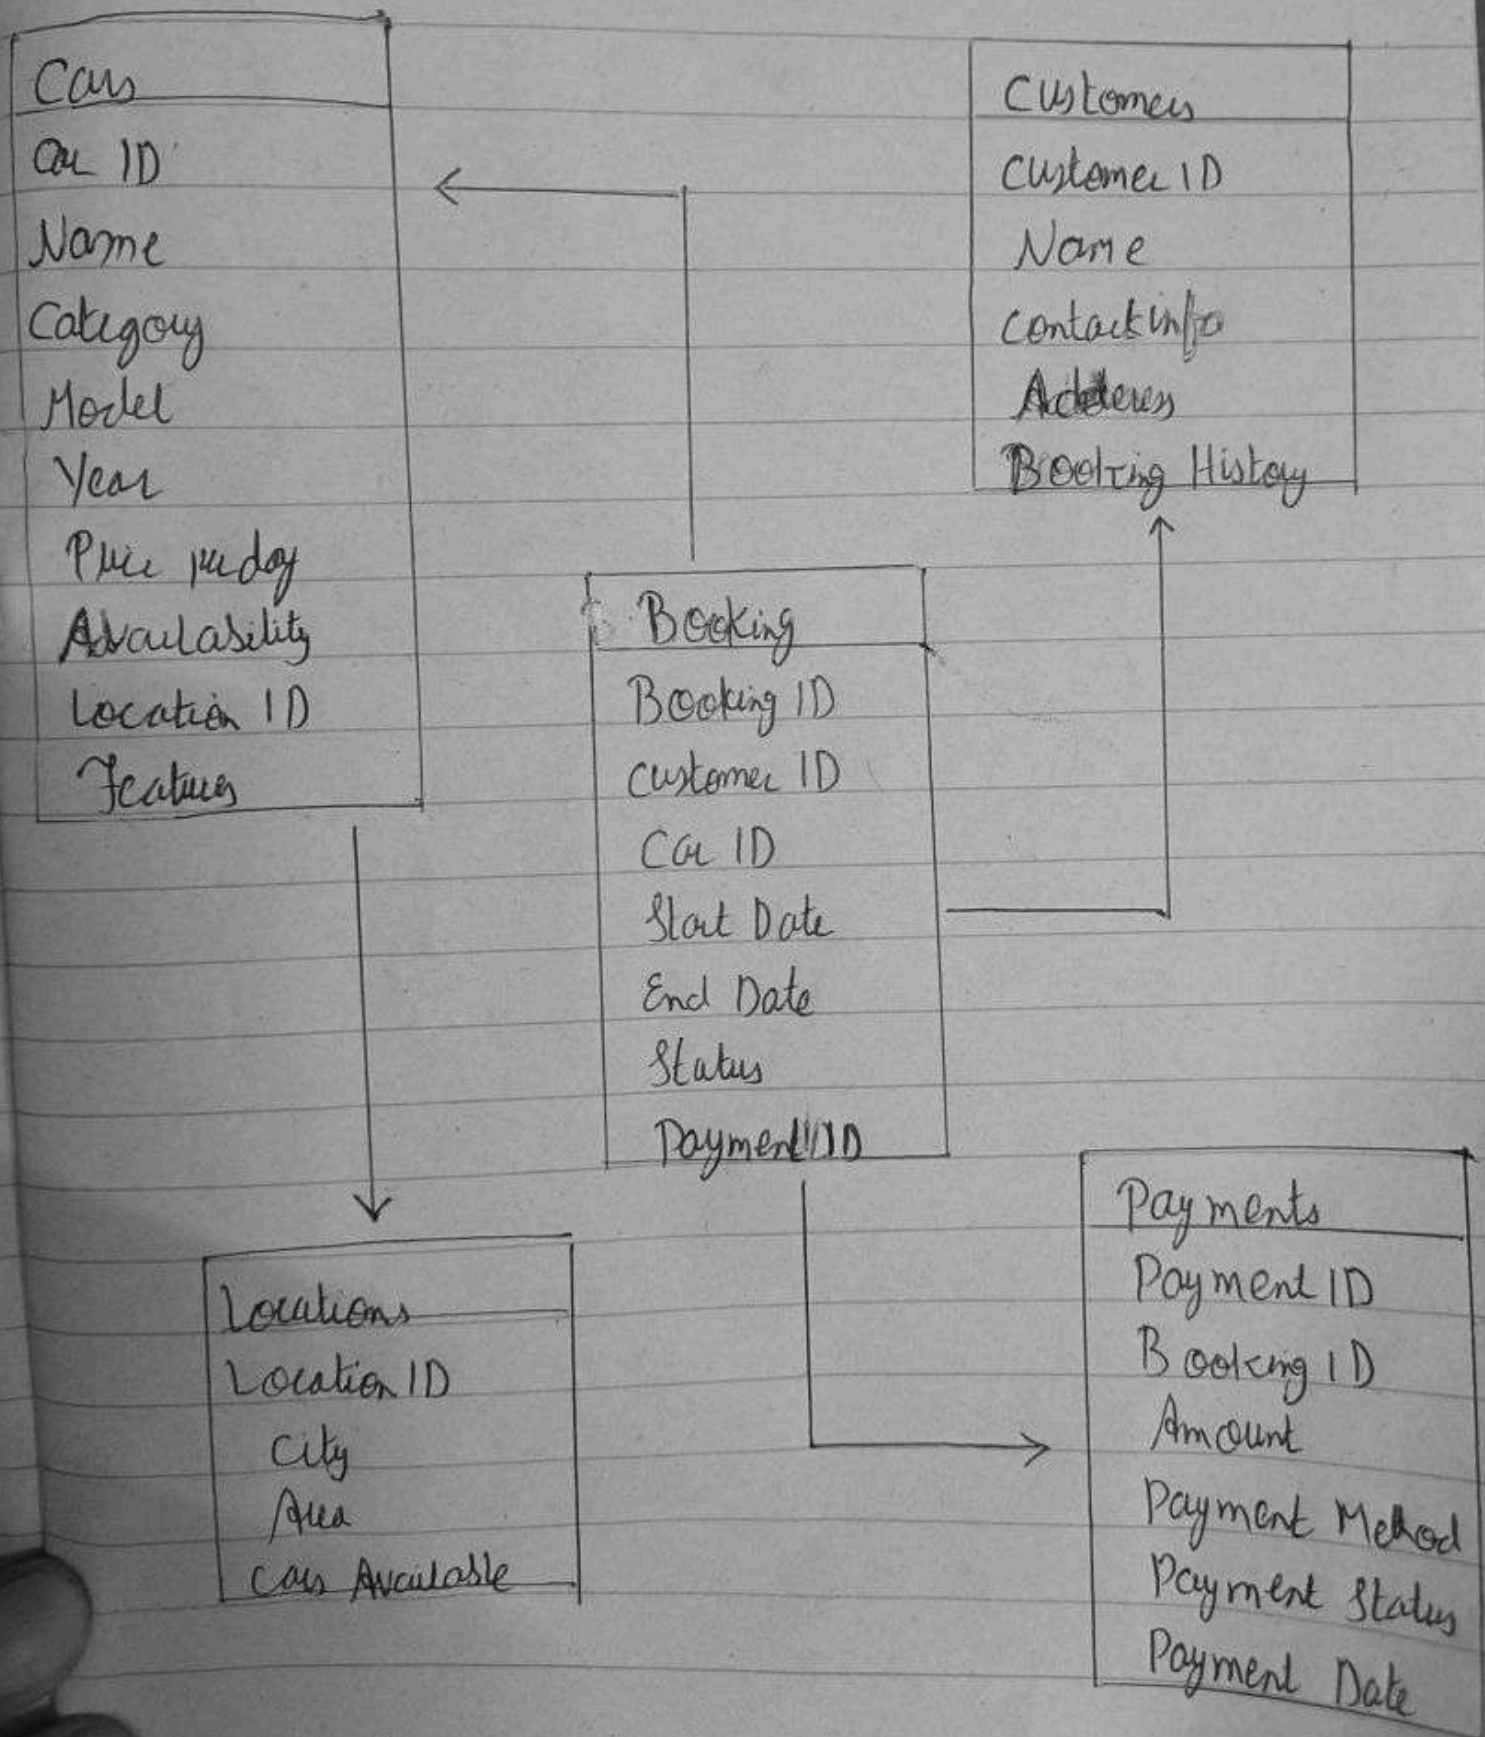 Cars
Car ID
Name
Category
Model
Year
Price per day
Availability
Location ID
Features
Customers
Customer ID
Name
Contact info
Address
Booking History
Booking
Booking ID
Customer ID
Car ID
Start Date
End Date
Status
Payment ID
Locations
Location ID
City
Area
Cars Available
Payments
Payment ID
Booking ID
Amount
Payment Method
Payment Status
Payment Date